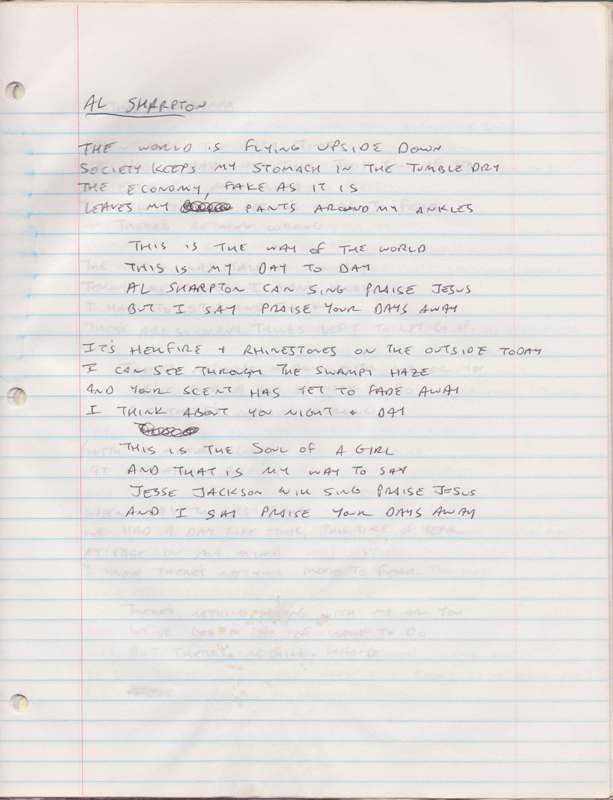 AL SHARPTON
THE WORLD IS FLYING UPSIDE DOWN
SOCIETY KEEPS MY STOMACH IN THE TUMBLE DRY
THE ECONOMY, FAKE AS IT IS
LEAVES MY PANTS AROUND MY ANKLES
THIS IS THE WAY OF THE WORLD
THIS IS MY DAY TO DAY
AL SHARPTON CAN SING PRAISE JESUS
BUT I SAY PRAISE YOUR DAYS AWAY
IT'S HELLFIRE & RHINESTONES ON THE OUTSIDE TODAY
I CAN SEE THROUGH THE SWAMPY HAZE
AND YOUR SCENT HAS YET TO FADE AWAY
I THINK ABOUT YOU NIGHT & DAY
THIS IS THE SOUL OF A GIRL
AND THAT IS MY WAY TO SAY
JESSE JACKSON WILL SING PRAISE JESUS
AND I SAY PRAISE YOUR DAYS AWAY